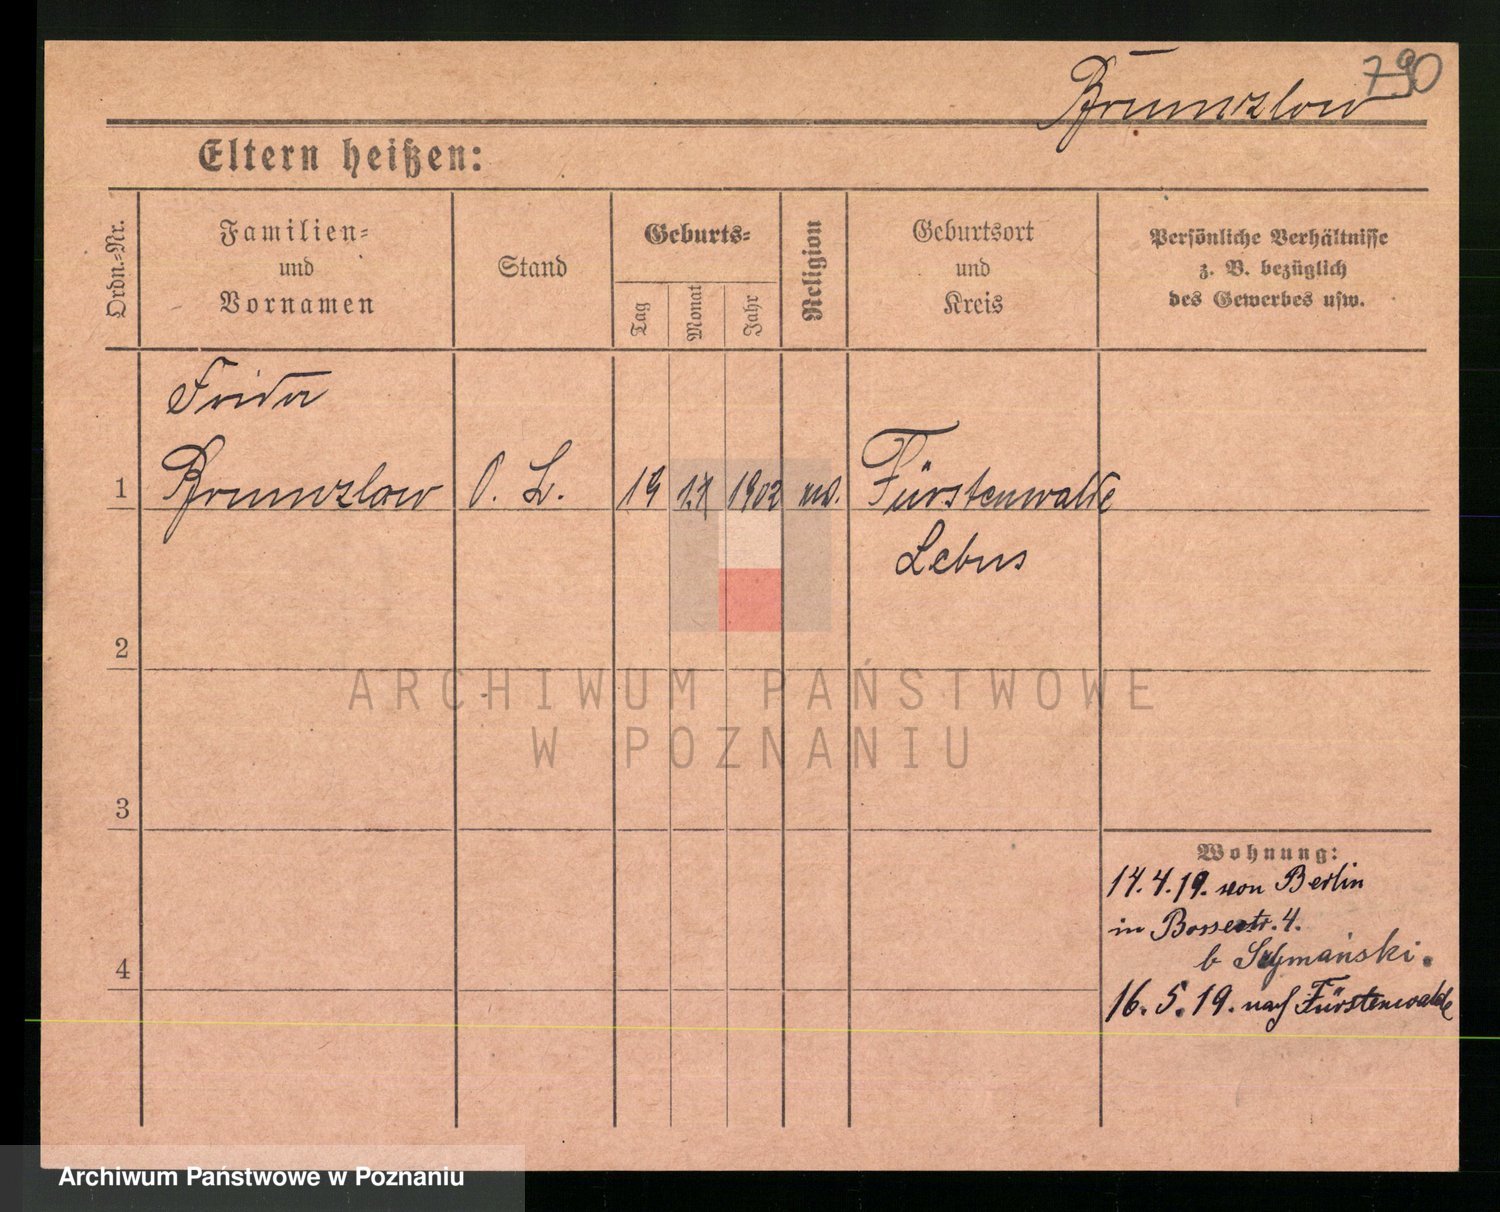 790
Brumslow
Eltern heißen:
Ordn.-Nr.
Familien-
und
Vornamen
Stand
Geburts-
Tag
Monat
Jahr
Religion
Geburtsort
und
Kreis
Persönliche Verhältnisse
z. B. bezüglich
des Gewerbes usw.
Frida
1 Brumslow O. L. 19 1902 Fürstenwalde
Lebus
2
3
4
Wohnung:
14.4.19. von Berlin
in Bossestr. 4.
b Szymański.
16.5.19. nach Fürstenwalde
ARCHIWUM PAŃSTWOWE
W POZNANIU
Archiwum Państwowe w Poznaniu